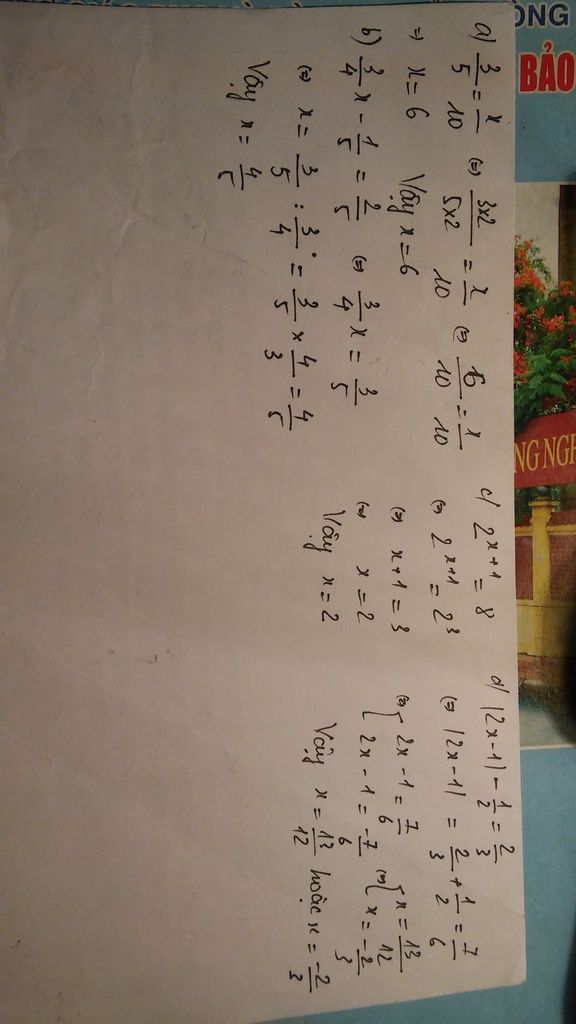 a) 3/5 = x/10 (=) 3x2/5x2 = x/10 (=) 16/10 = x/10
=) x = 6 Vậy x = 6
b) 3/4 x - 1/5 = 2/5 (=) 3/4 x = 3/5
(=) x = 3/5 : 3/4 = 3/5 x 4/3 = 4/5
Vậy x = 4/5
c/ 2^x+1 = 8
(=) 2^x+1 = 2^3
(=) x+1 = 3
(=) x = 2
Vậy x = 2
d/ |2x-1| - 1/2 = 2/3
(=) |2x-1| = 2/3 + 1/2 = 7/6
(=) { 2x-1 = 7/6 (=) { x = 13/12
2x-1 = -7/6 x = -2/3
Vậy x = 13/12 hoặc x = -2/3
BẢO